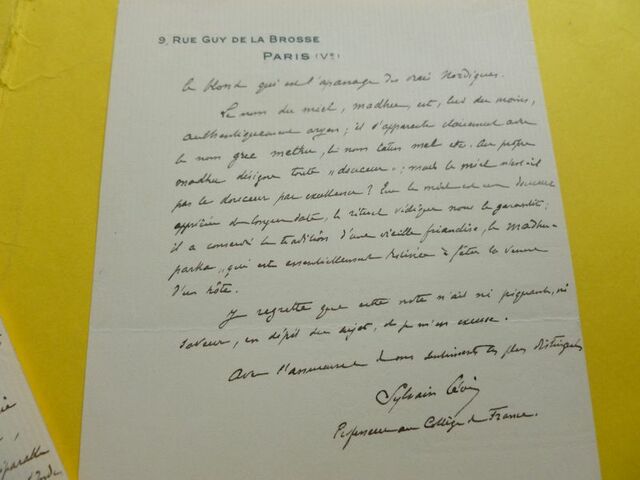 9, RUE GUY DE LA BROSSE
PARIS (Ve)
le blond qui est l'apanage des vrais Nordiques.
Le nom du miel, madhu, est, lui du moins,
authentiquement aryen ; il s'apparente clairement avec
le nom grec methu, le nom latin mel etc. Au propre
madhu désigne toute "douceur" ; mais le miel n'est-il
pas la douceur par excellence ? Que le miel est une douceur
appréciée de longue date, le rituel védique nous le garantit ;
il a conservé la tradition d'une vieille friandise, le madhu-
parka, qui est essentiellement destinée à fêter la venue
d'un hôte.
Je regrette que cette note n'ait ni piquant, ni
saveur, en dépit du sujet, et je m'en excuse.
Avec l'assurance de mes sentiments les plus distingués
Sylvain Lévi
Professeur au Collège de France.